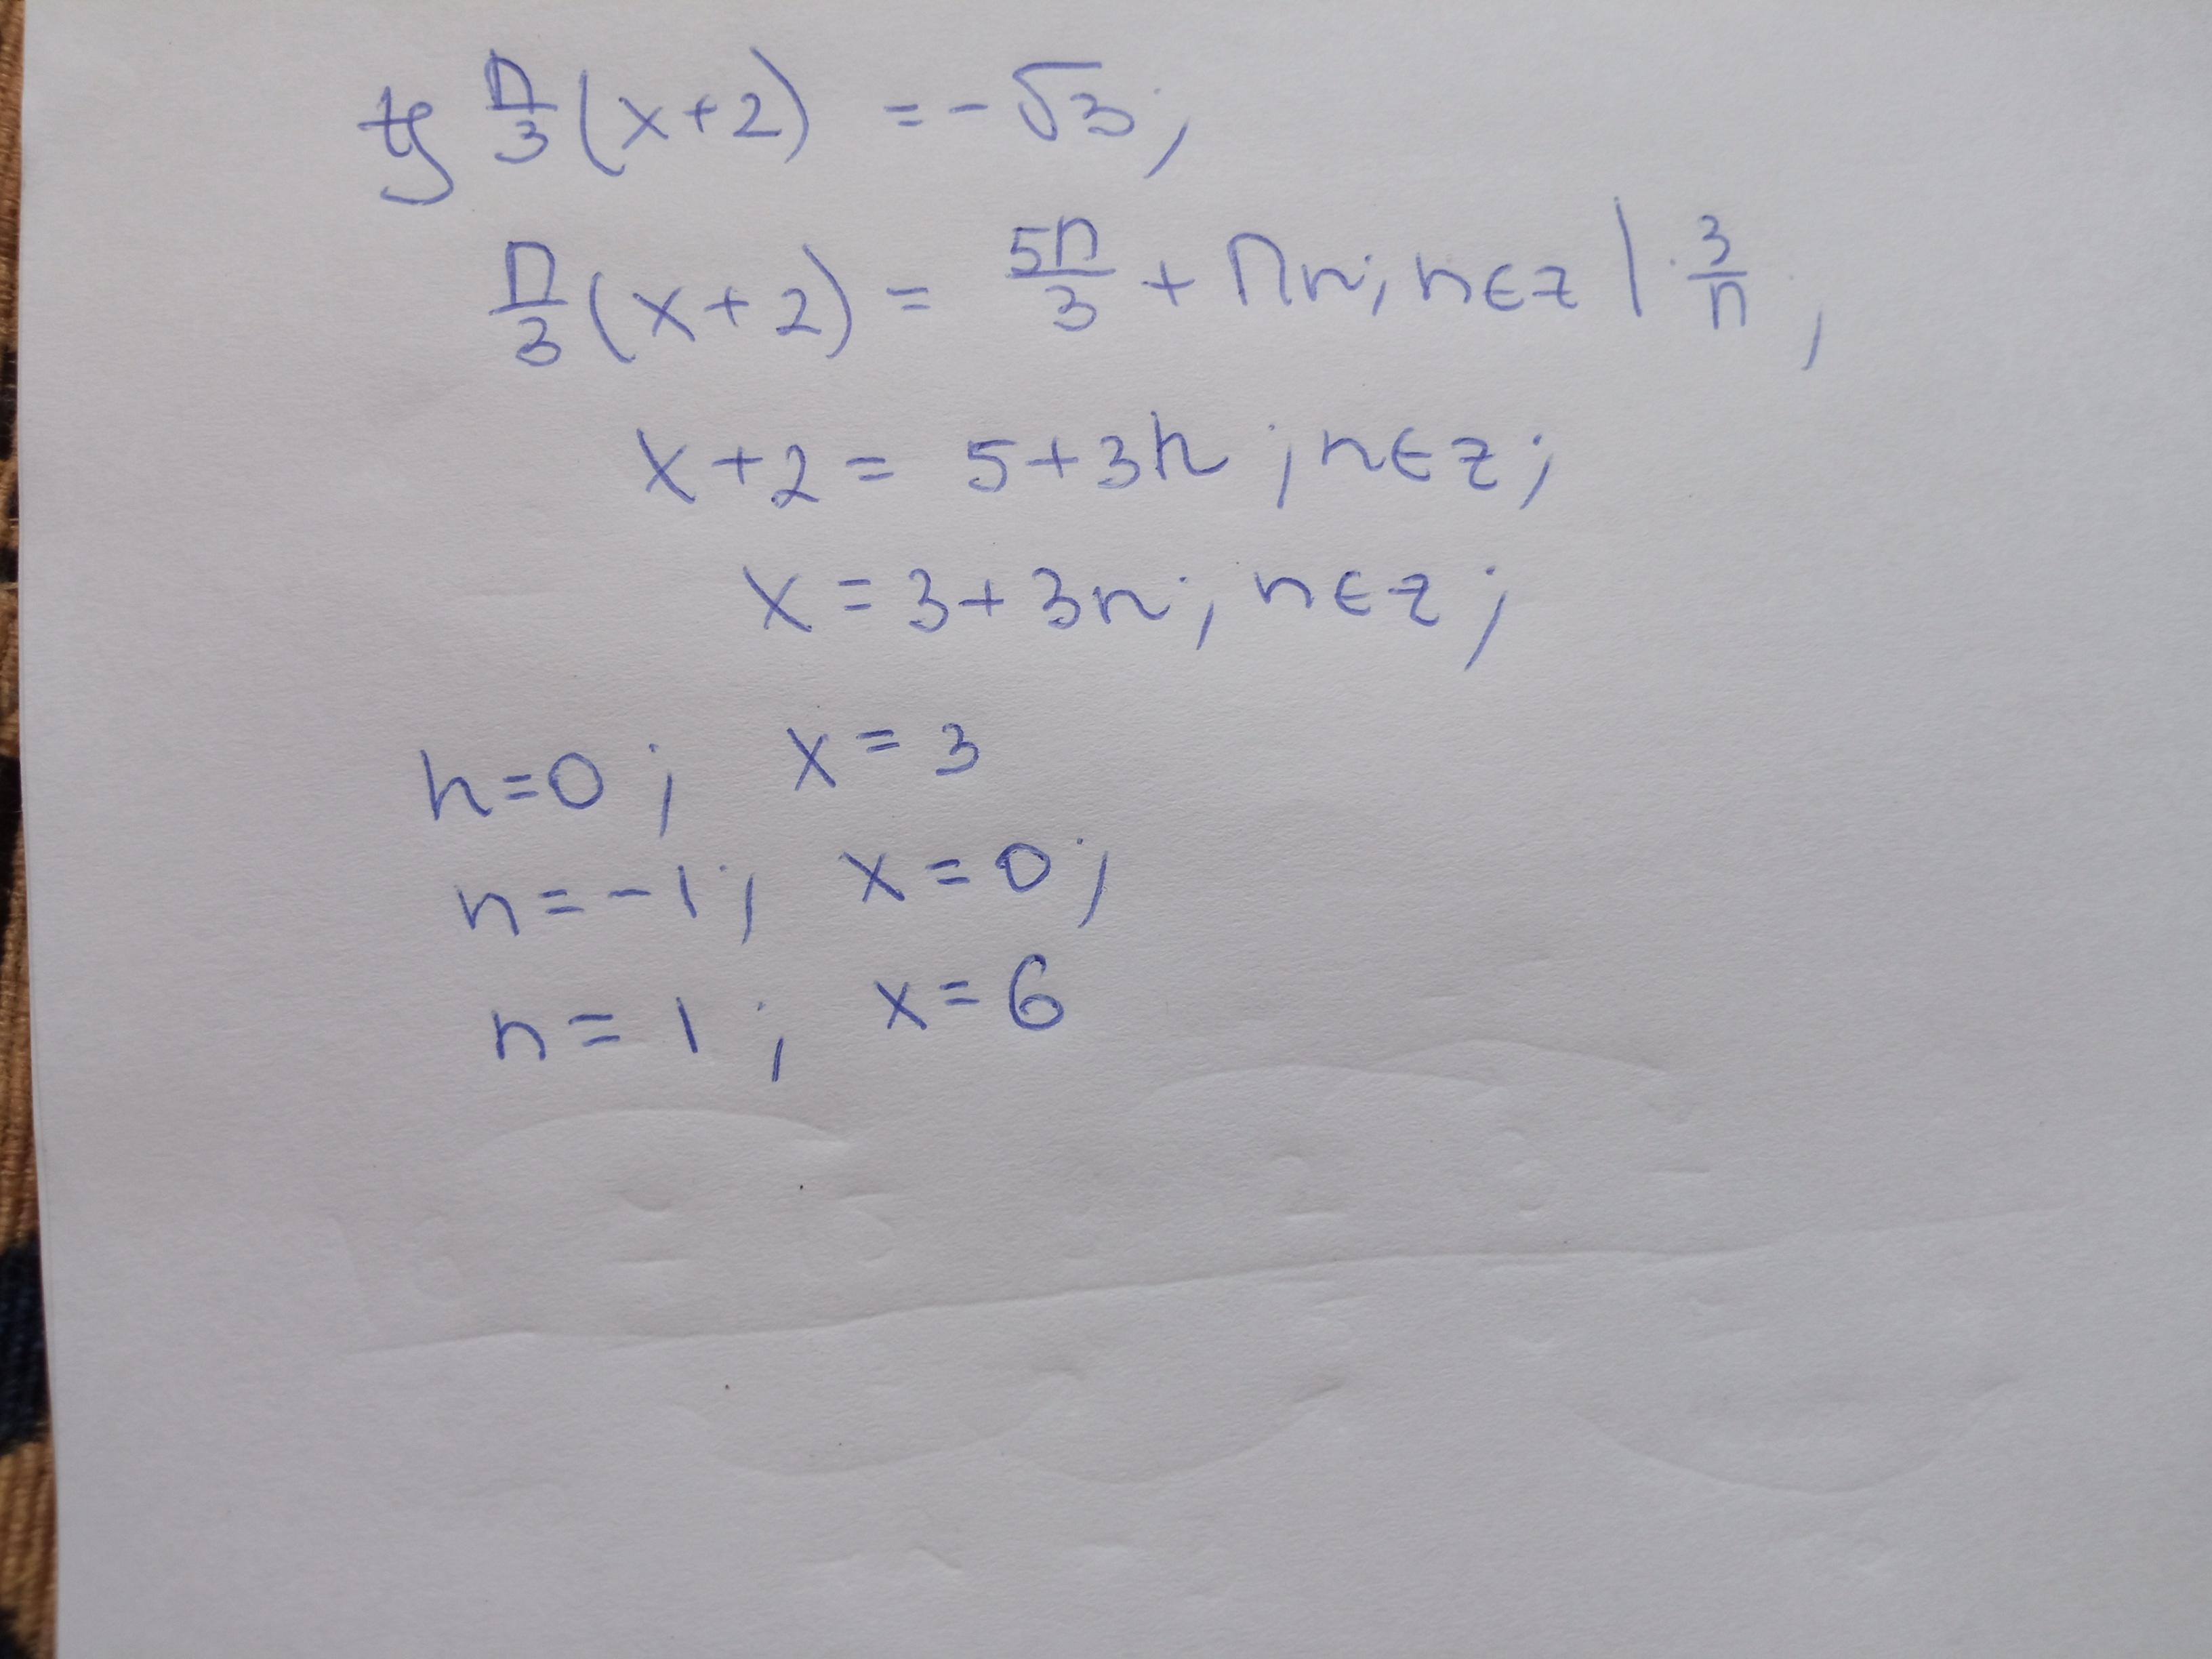 tg π/3 (x+2) = -√3;
π/3 (x+2) = 5π/3 + πn; n∈z | · 3/π;
x+2 = 5+3n; n∈z;
x = 3+3n; n∈z;
n=0; x=3
n=-1; x=0;
n=1; x=6